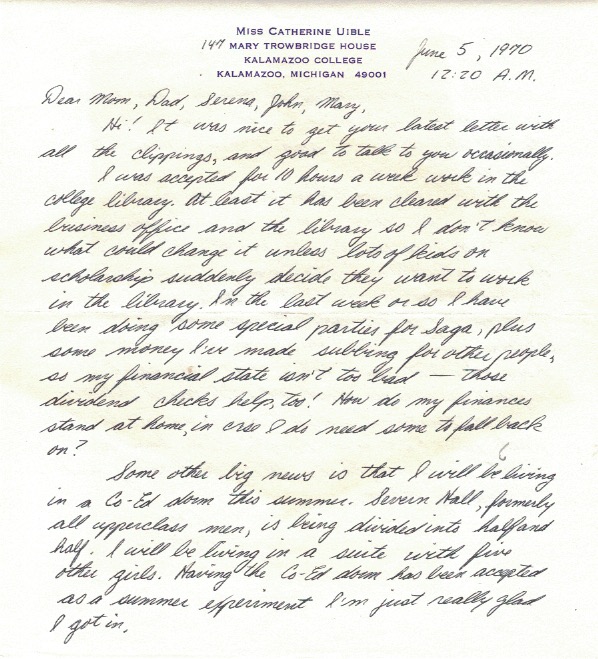 Miss Catherine Uible
147 Mary Trowbridge House
Kalamazoo College
Kalamazoo, Michigan 49001
June 5, 1970
12:20 A.M.
Dear Mom, Dad, Serena, John, Mary,
Hi! It was nice to get your latest letter with
all the clippings, and good to talk to you occasionally.
I was accepted for 10 hours a week work in the
college library. At least it has been cleared with the
business office and the library so I don't know
what could change it unless lots of kids on
scholarship suddenly decide they want to work
in the library. In the last week or so I have
been doing some special parties for Saga, plus
some money I've made subbing for other people,
so my financial state isn't too bad — those
dividend checks help, too! How do my finances
stand at home, in case I do need some to fall back
on?
Some other big news is that I will be living
in a Co-Ed dorm this summer. Severn Hall, formerly
all upperclass men, is being divided into half and
half. I will be living in a suite with five
other girls. Having the Co-Ed dorm has been accepted
as a summer experiment I'm just really glad
I got in.